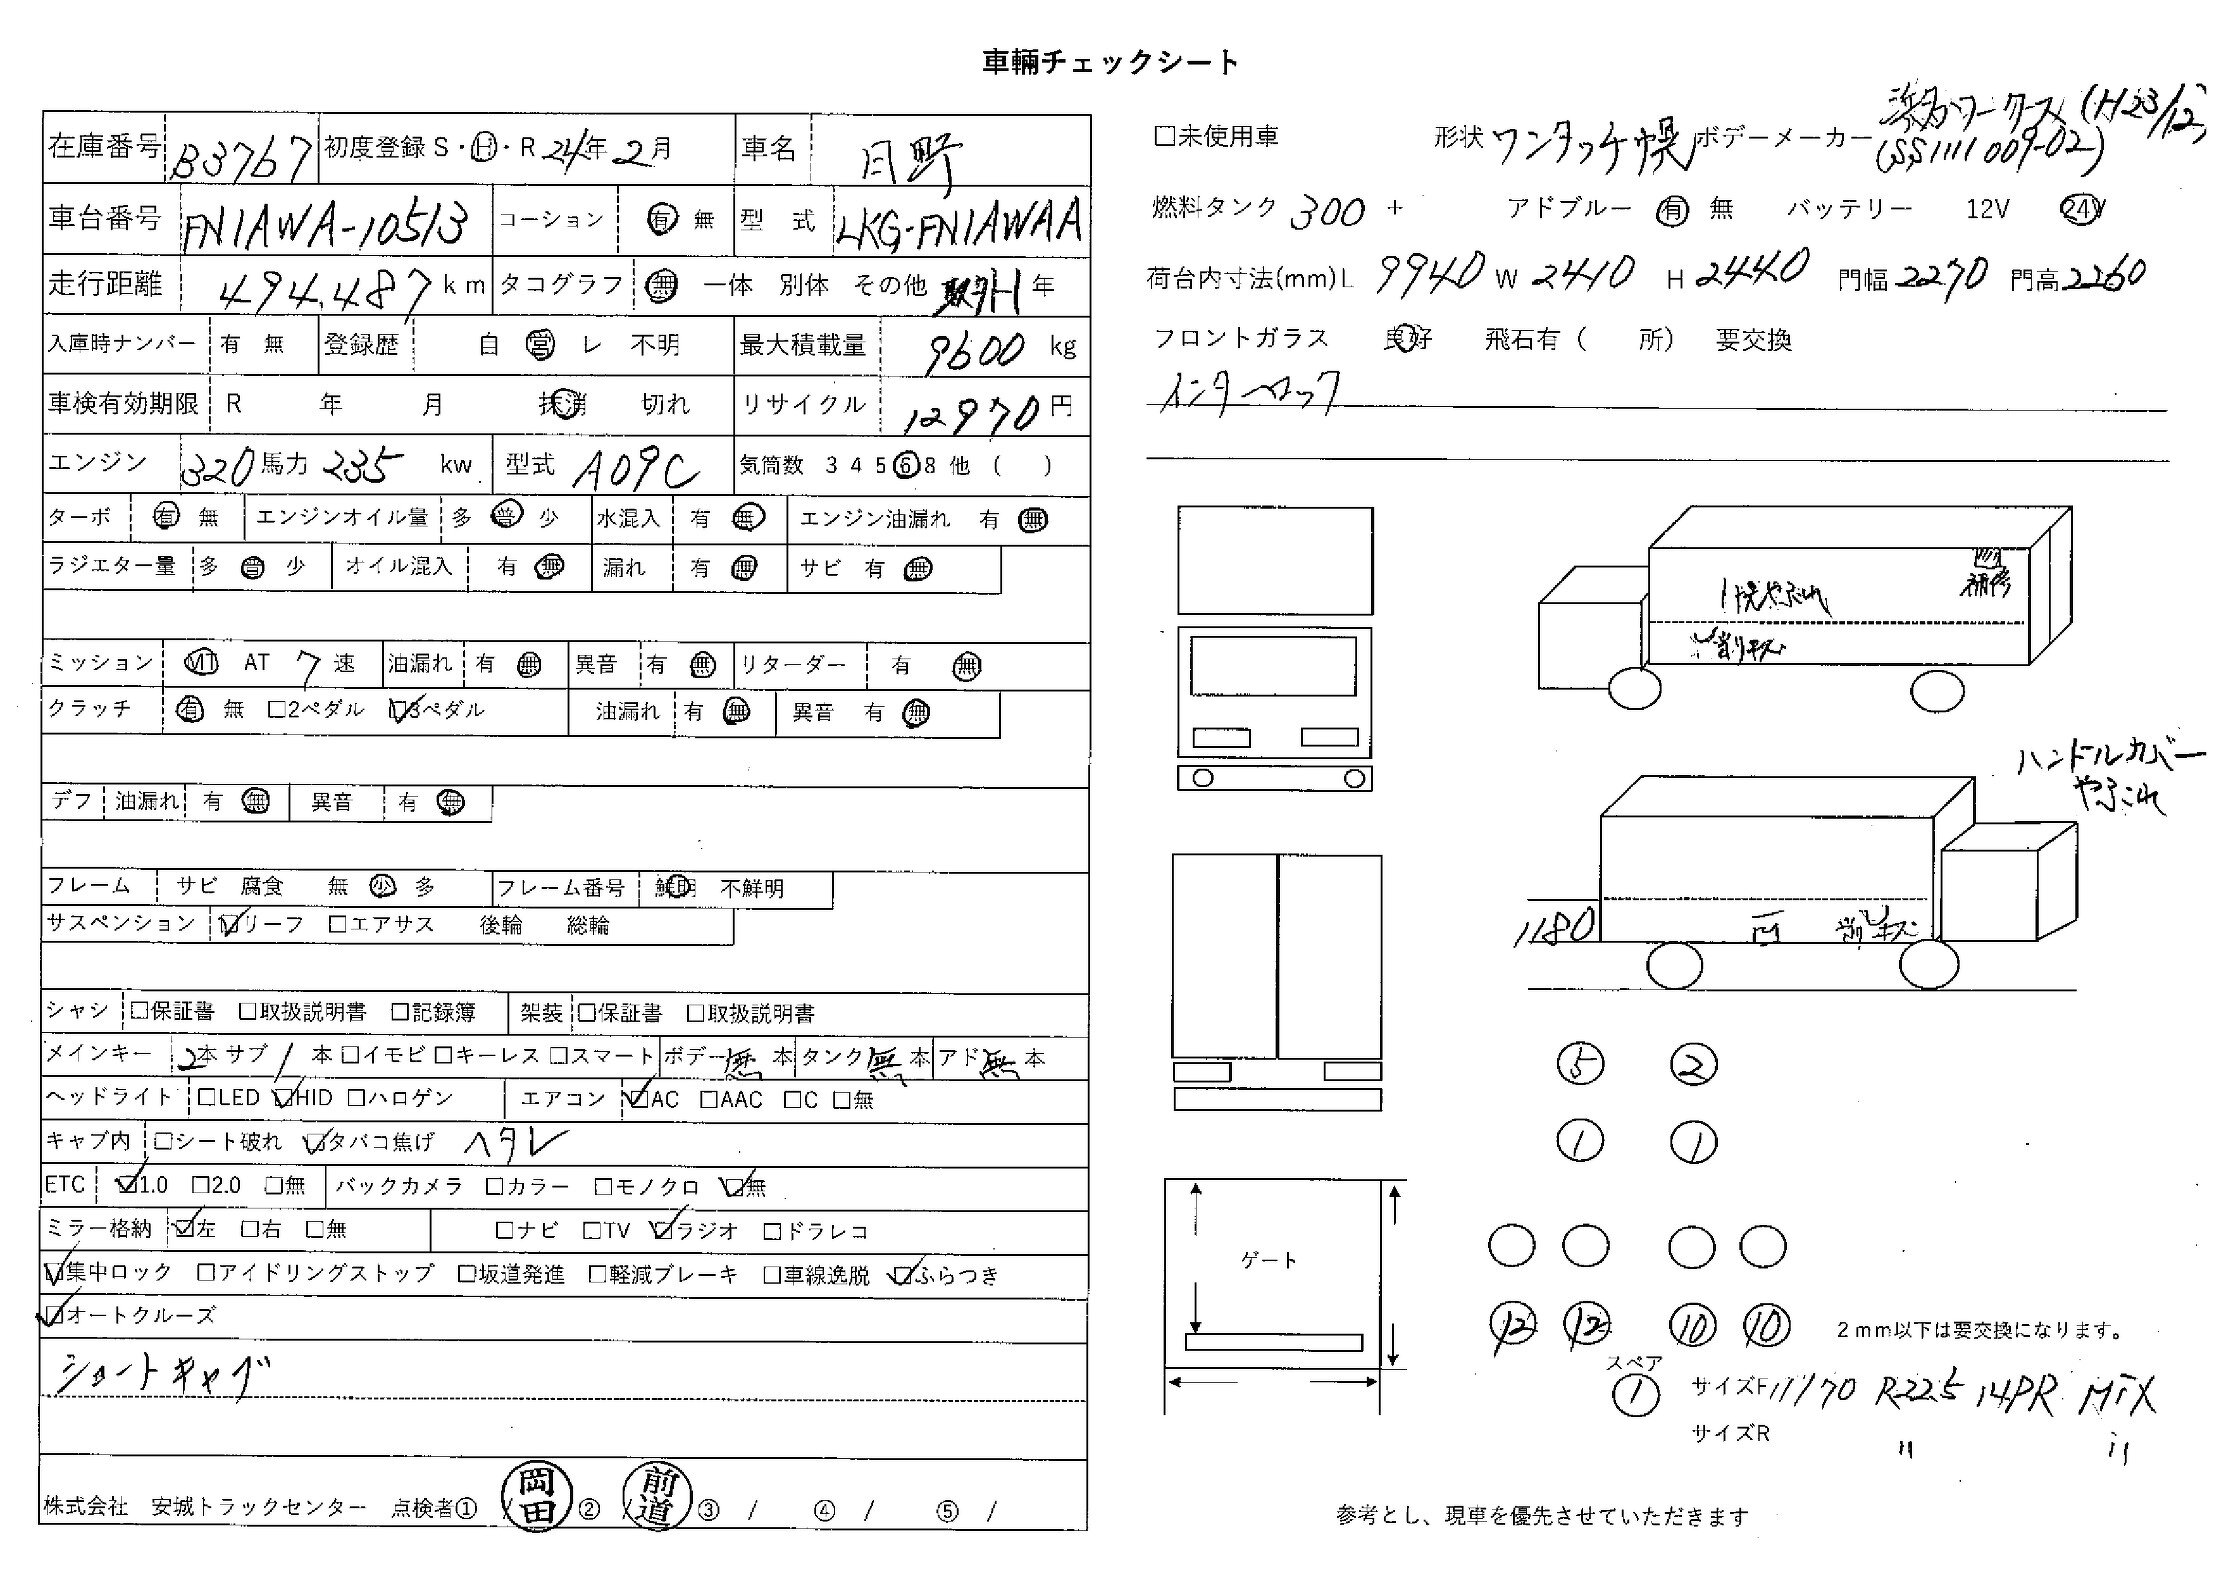 車輌チェックシート
在庫番号 B3767 初度登録 S・H・R 24年 2月 車名 日野
車台番号 FN1AWA-10513 コーション 有 無 型 式 LKG-FN1AWAA
走行距離 494,487 km タコグラフ 無 一体 別体 その他 取外 年
入庫時ナンバー 有 無 登録歴 自 営 レ 不明 最大積載量 9600 kg
車検有効期限 R 年 月 抹消 切れ リサイクル 12970 円
エンジン 320 馬力 235 kw 型式 A09C 気筒数 3 4 5 6 8 他 ( )
ターボ 有 無 エンジンオイル量 多 普 少 水混入 有 無 エンジン油漏れ 有 無
ラジエター量 多 普 少 オイル混入 有 無 漏れ 有 無 サビ 有 無
ミッション MT AT 7 速 油漏れ 有 無 異音 有 無 リターダー 有 無
クラッチ 有 無 □2ペダル ☑3ペダル 油漏れ 有 無 異音 有 無
デフ 油漏れ 有 無 異音 有 無
フレーム サビ 腐食 無 少 多 フレーム番号 鮮明 不鮮明
サスペンション ☑リーフ □エアサス 後輪 総輪
シャシ □保証書 □取扱説明書 □記録簿 架装 □保証書 □取扱説明書
メインキー 2本 サブ 1 本 □イモビ □キーレス □スマート ボデー 無 本 タンク 無 本 アド 無 本
ヘッドライト □LED ☑HID □ハロゲン エアコン ☑AC □AAC □C □無
キャブ内 □シート破れ ☑タバコ焦げ ヘタレ
ETC ☑1.0 □2.0 □無 バックカメラ □カラー □モノクロ ☑無
ミラー格納 ☑左 □右 □無 □ナビ □TV ☑ラジオ □ドラレコ
☑集中ロック □アイドリングストップ □坂道発進 □軽減ブレーキ □車線逸脱 ☑ふらつき
☑オートクルーズ
ショートキャブ
株式会社 安城トラックセンター 点検者① / 岡田 ② / 前道 ③ / ④ / ⑤ /
□未使用車 形状 ワンタッチ幌 ボデーメーカー 浜名ワークス (H23/12)
(SS1111009-02)
燃料タンク 300 + アドブルー 有 無 バッテリー 12V 24V
荷台内寸法(mm) L 9940 W 2410 H 2440 門幅 2270 門高 2260
フロントガラス 良好 飛石有 ( 所) 要交換
インターロック
補修
幌やぶれ
削りキズ
ハンドルカバー
やぶれ
1180
凹 削レキズ
5 2
1 1
ゲート
12 12 10 10
2mm以下は要交換になります。
スペア
1
サイズF 11/70 R22.5 14PR MIX
サイズR 〃 〃
参考とし、現車を優先させていただきます